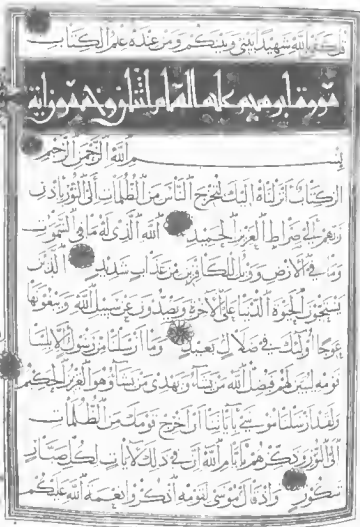 قل كفى بالله شهيدا بيني وبينكم ومن عنده علم الكتاب
سورة ابرهيم عليه السلام اثنان وخمسون اية
بسم الله الرحمن الرحيم
الر كتاب أنزلناه اليك لتخرج الناس من الظلمات الى النور باذن
ربهم إلى صراط العزيز الحميد الله الذي له ما في السموات
وما في الأرض وويل للكافرين من عذاب شديد الذين
يستحبون الحيوة الدنيا على الآخرة ويصدون عن سبيل الله ويبغونها
عوجا أولئك في ضلال بعيد وما أرسلنا من رسول إلا بلسان
قومه ليبين لهم فيضل الله من يشاء ويهدي من يشاء وهو العزيز الحكيم
ولقد أرسلنا موسى بآياتنا أن أخرج قومك من الظلمات
الى النور وذكرهم بأيام الله إن في ذلك لآيات لكل صبار
شكور وإذ قال موسى لقومه اذكروا نعمة الله عليكم